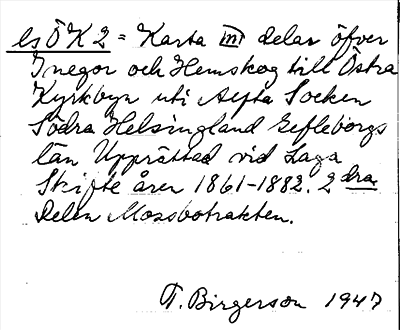 ls Ö K 2 = Karta m delar öfver
Inegor och Hemskog till Östra
Kyrkbyn uti Alfta Socken
Södra Helsingland Gefleborgs
län Upprättad vid Laga
Skifte åren 1861-1882. 2 dra
Delen Mossbotrakten.
T. Birgerson 1947